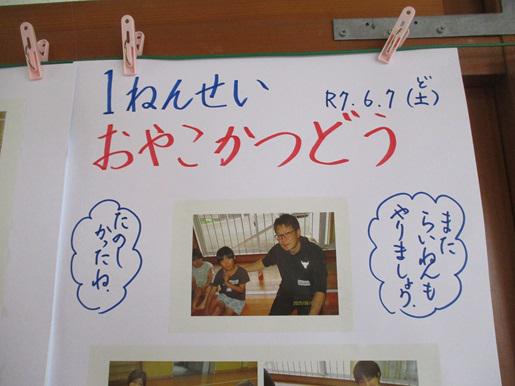 1ねんせい
R7.6.7(土)
ど
おやこかつどう
また
らいねんも
やりましょう.
たのし
かったね.